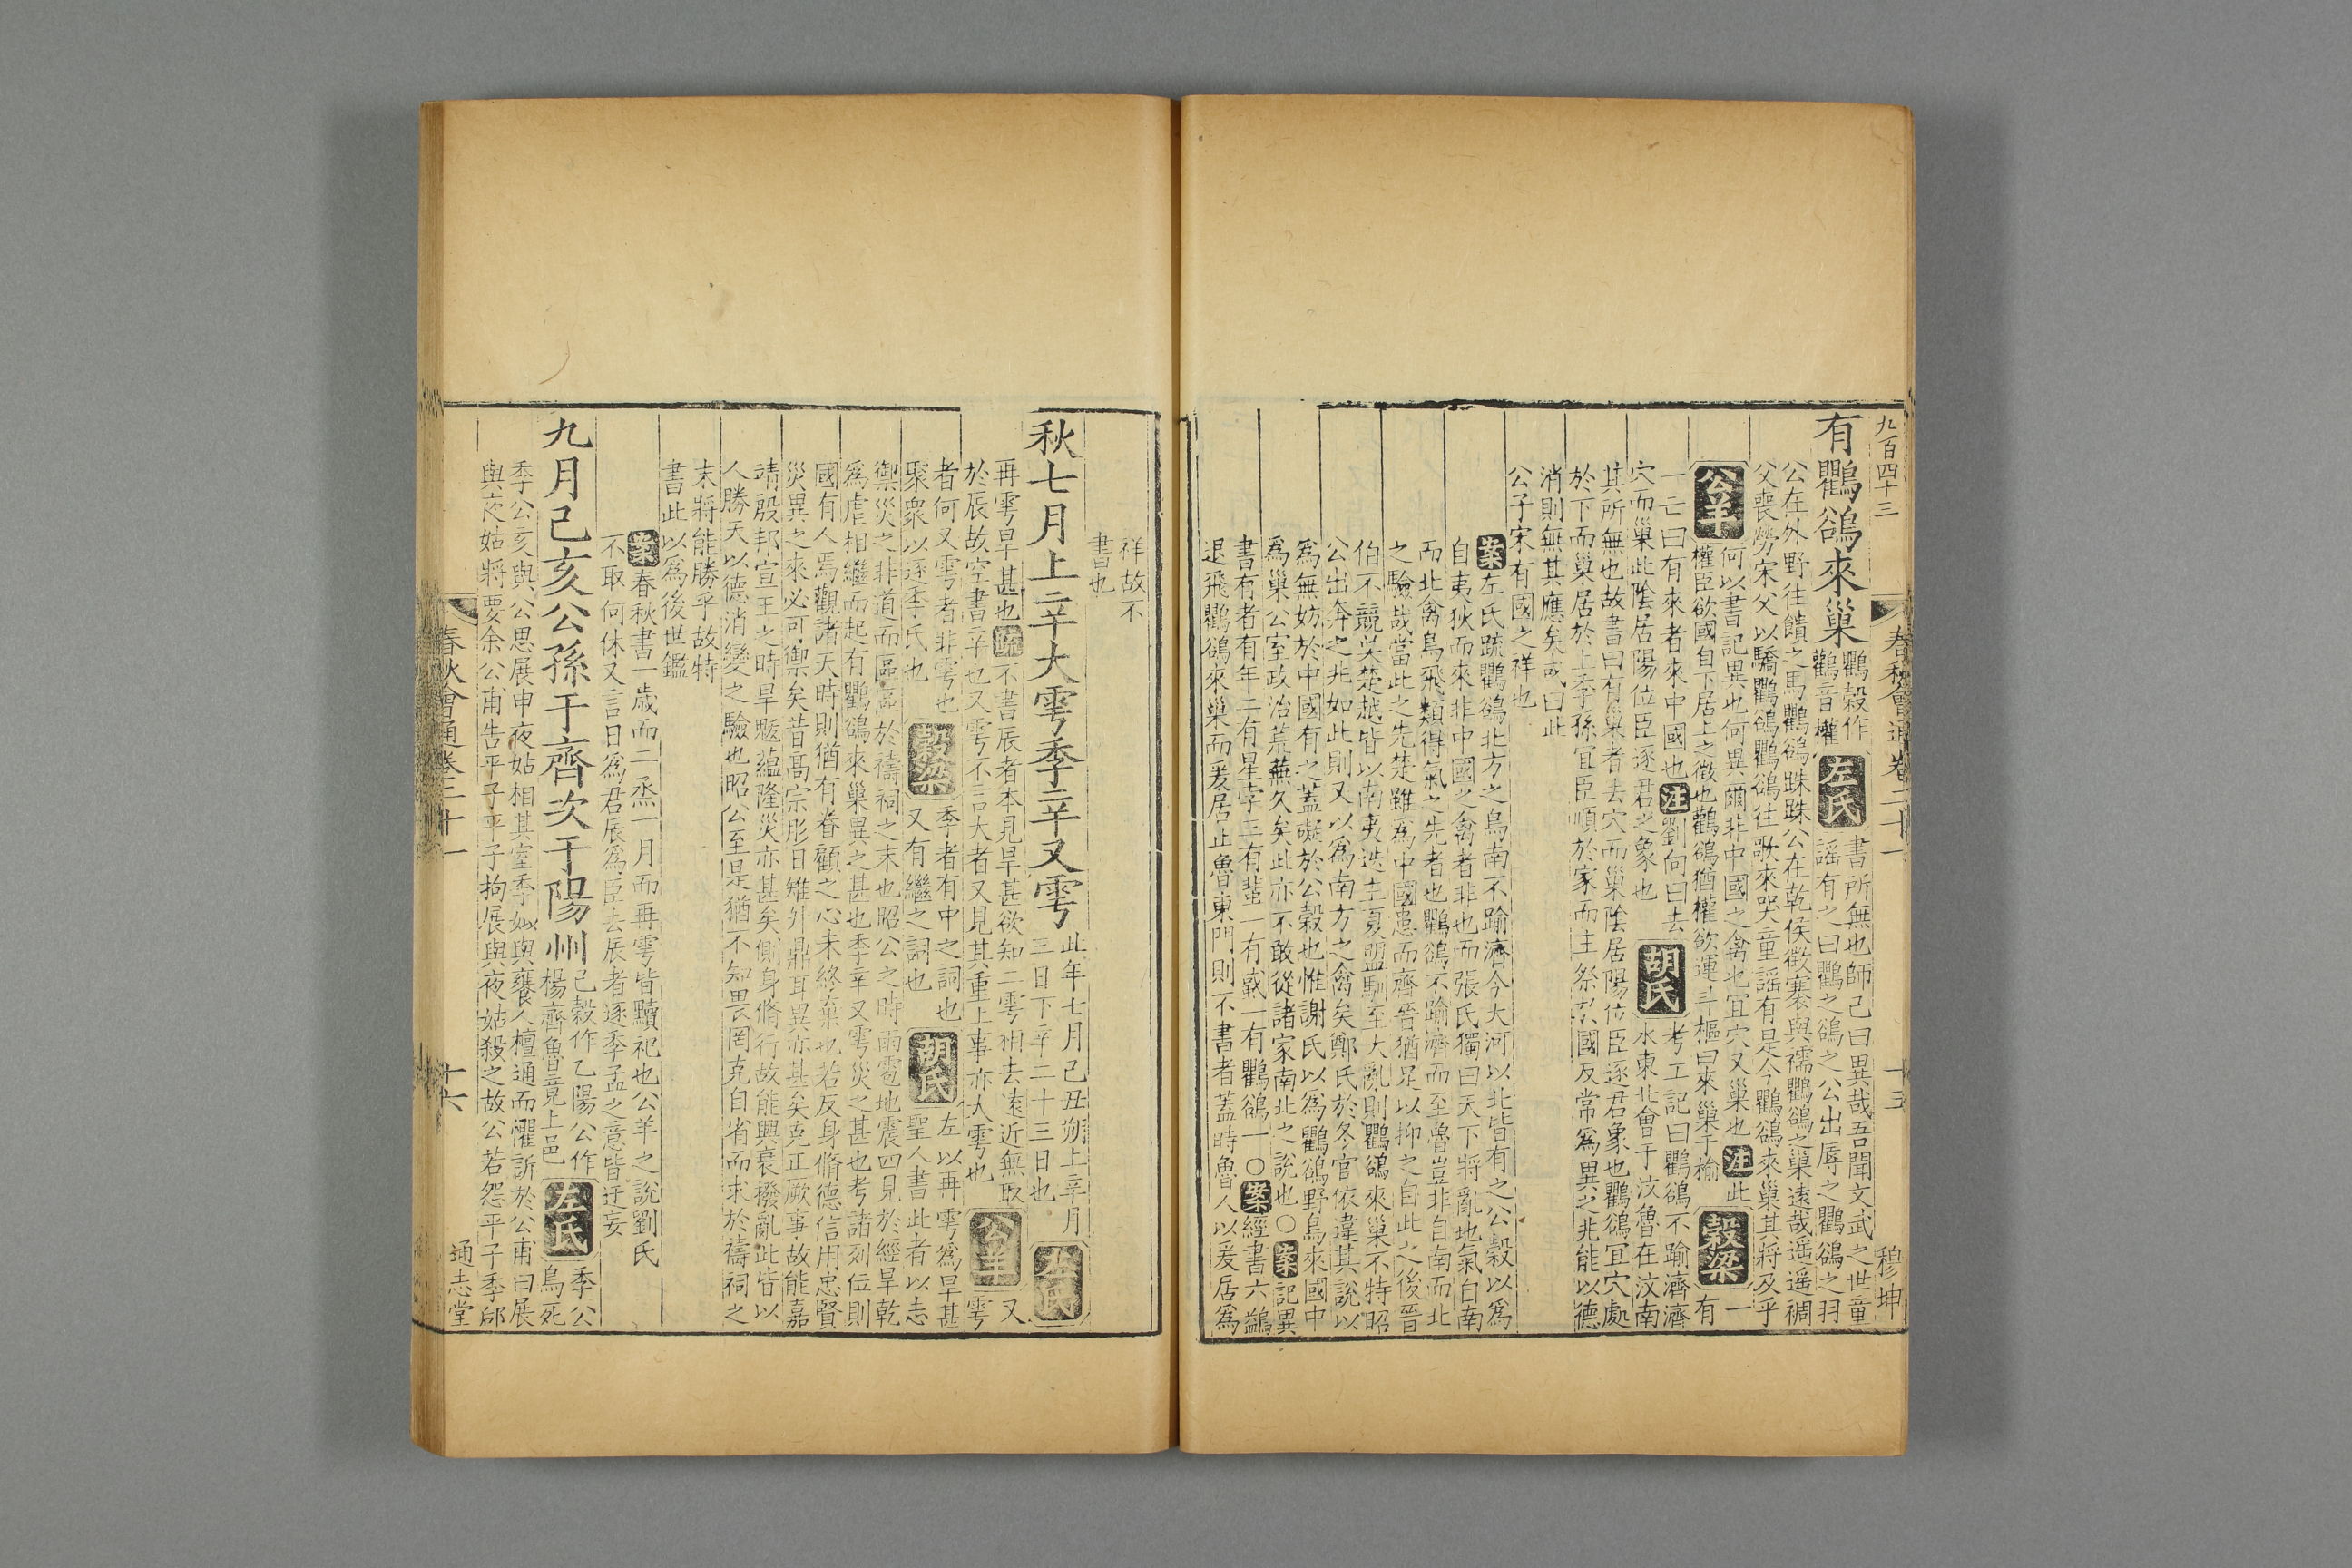 九百四十三
春秋會通卷二十一
十五
穆坤
有鸜鵒來巢
鸜穀作
鸛音權
左氏
書所無也師己曰異哉吾聞文武之世童
謡有之曰鸜之鵒之公出辱之鸜鵒之羽
公在外野往饋之馬鸜鵒跦跦公在乾侯徵褰與襦鸜鵒之巢遠哉遥遥裯
父喪勞宋父以驕鸜鵒鸜鵒往歌來哭童謡有是今鸜鵒來巢其將及乎
公羊
何以書記異也何異爾非中國之禽也宜穴又巢也
注
此
權臣欲國自下居上之徵也鸛鵒猶權欲運斗樞曰來巢于榆
穀梁
一
有
一亡曰有來者來中國也
注
劉向曰去
穴而巢此陰居陽位臣逐君之象也
胡氏
考工記曰鸜鵒不踰濟濟
水東北會于汶魯在汶南
其所無也故書曰有巢者去穴而巢陰居陽位臣逐君象也鸜鵒宜穴處
於下而巢居於上季孫宜臣順於家而主祭於國反常爲異之兆能以德
消則無其應矣或曰此
公子宋有國之祥也
案
左氏疏鸜鵒北方之鳥南不踰濟今大河以北皆有之公穀以爲
自夷狄而來非中國之禽者非也而張氏獨曰天下將亂地氣自南
而北禽鳥飛類得氣之先者也鸜鵒不踰濟而至魯豈非自南而北
之驗哉當此之先楚雖爲中國患而齊晉猶足以抑之自此之後晉
伯不競吳楚越皆以南夷迭主夏盟馴至大亂則鸜鵒來巢不特昭
公出奔之兆如此則又以爲南方之禽矣鄭氏於冬官依違其說以
爲無妨於中國有之蓋礙於公穀也惟謝氏以爲鸜鵒野鳥來國中
爲巢公室政治荒蕪久矣此亦不敢從諸家南北之說也○
案
記異
書有者有年二有星孛三有蜚一有蜮一有鸜鵒一○
案
經書六鷁
退飛鸜鵒來巢而爰居止魯東門則不書者蓋時魯人以爰居爲
祥故不
書也
秋七月上辛大雩季辛又雩
此年七月己丑朔上辛月
三日下辛二十三日也
左氏
再雩旱甚也
疏
不書辰者本見旱甚欲知二雩相去遠近無取
於辰故空書辛也又雩不言大者又見其重上事亦大雩也
公羊
又
雩
者何又雩者非雩也
聚衆以逐季氏也
穀梁
季者有中之詞也
又有繼之詞也
胡氏
左以再雩爲旱甚
聖人書此者以志
禦災之非道而區區於禱祠之末也昭公之時雨雹地震四見於經旱乾
爲虐相繼而起有鸜鵒來巢異之甚也季辛又雩災之甚也考諸列位則
國有人焉觀諸天時則猶有眷顧之心未終棄也若反身脩德信用忠賢
災異之來必可禦矣昔高宗肜日雉升鼎耳異亦甚矣克正厥事故能嘉
靖殷邦宣王之時旱魃藴隆災亦甚矣側身脩行故能興衰撥亂此皆以
人勝天以德消變之驗也昭公至是猶不知畏罔克自省而求於禱祠之
末將能勝乎故特
書此以爲後世鑑
案
春秋書一歲而二烝一月而再雩皆黷祀也公羊之說劉氏
不取何休又言日爲君辰爲臣去辰者逐季孟之意皆迂妄
九月己亥公孫于齊次于陽州
己穀作乙陽公作
楊齊魯竟上邑
左氏
季公
鳥死
季公亥與公思展申夜姑相其室季姒與饔人檀通而懼訴於公甫曰展
與夜姑將要余公甫告平子平子拘展與夜姑殺之故公若怨平子季郈
春秋會通卷二十一
十六
通志堂